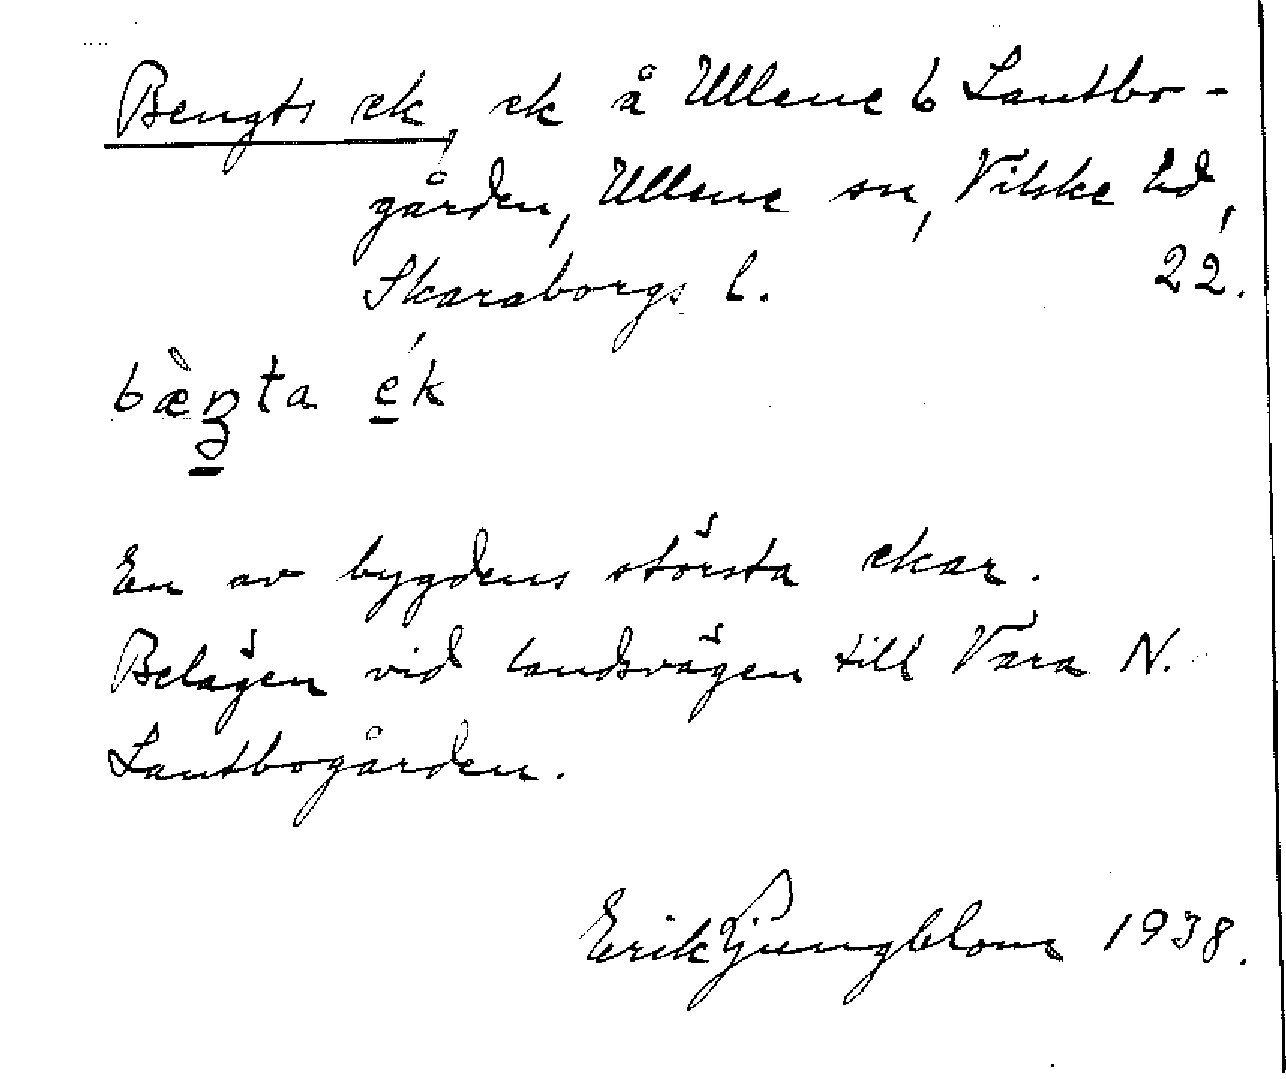 Bengts ek, ek å Ullene 6 Lantbo-
gården, Ullene sn, Vilske hd,
Skaraborgs l. 22.
ék
En av bygdens största ekar.
Belägen vid landsvägen till Vara N.
Lantbogården.
Erik Ljungblom 1938.